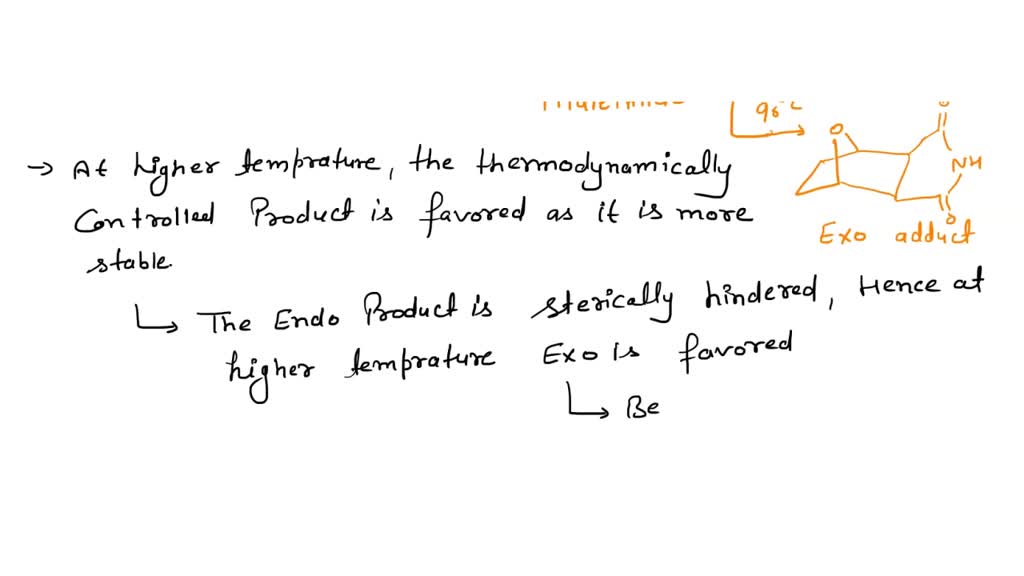 90°C
O
O
→ At higher temprature, the thermodynamically
NH
Controlled Product is favored as it is more
O
Exo adduct
stable.
The Endo Product is sterically hindered, Hence at
higher temprature Exo is favored
Be